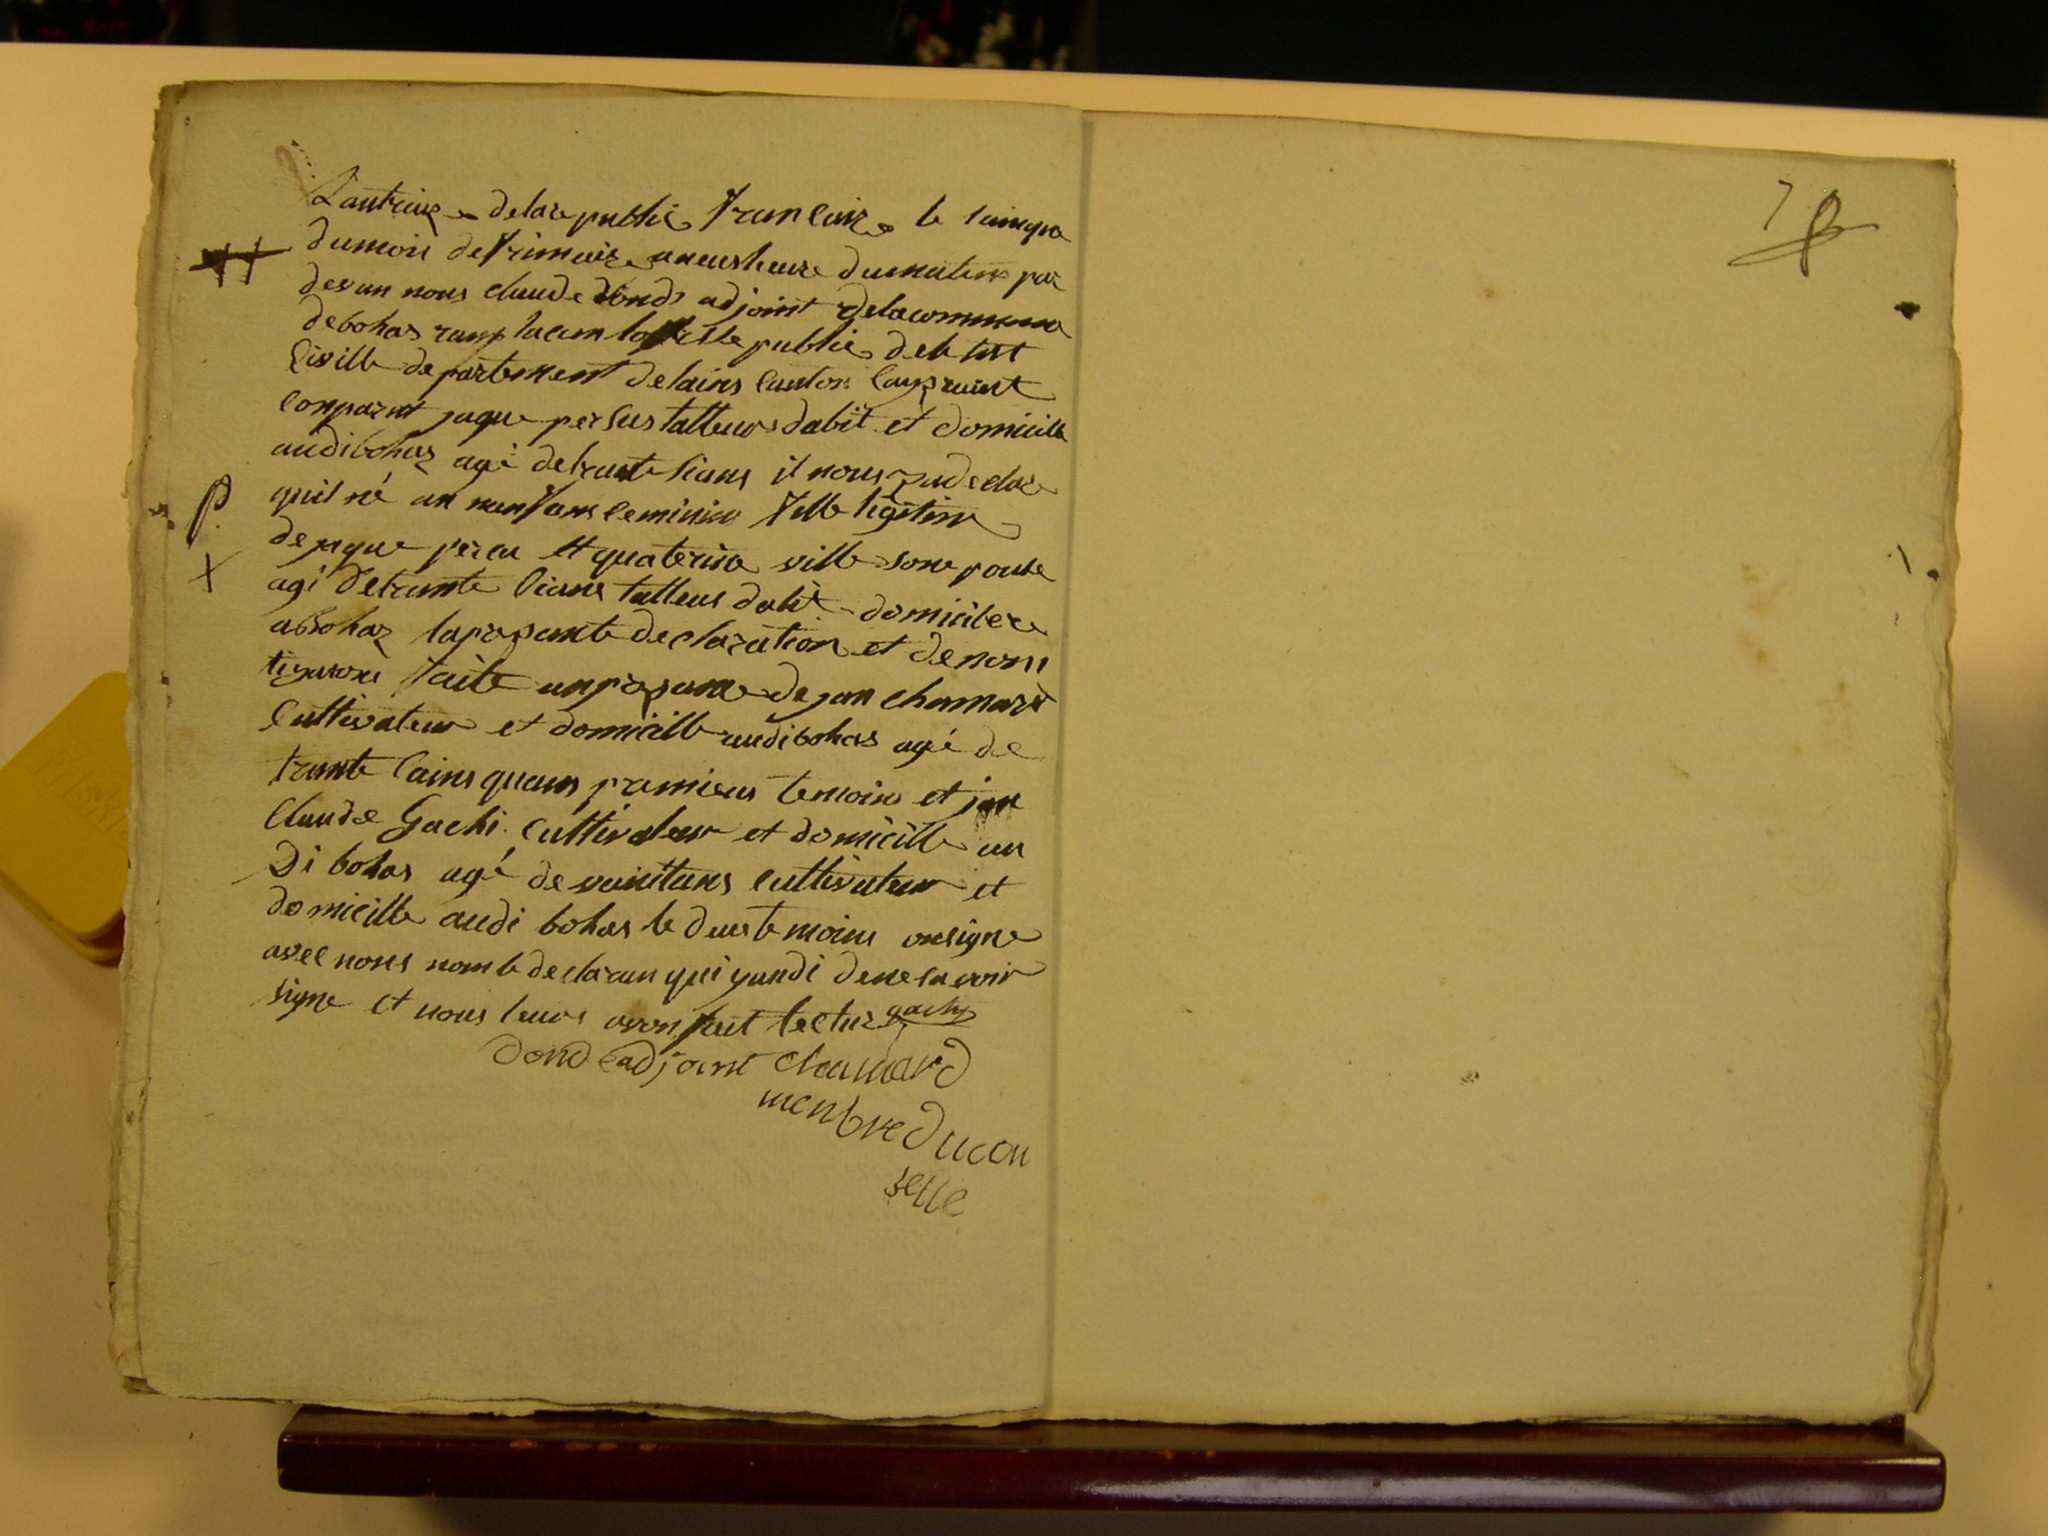 Lantreize delare public Francaize le sainque
dumois defrimaire aneusheure dumatin par
devan nous claude dond adjoint delacommune
debohas ranplacan publie delest
Civille departement delains Canton
Conparut jaque persus talleurs dabit et domicille
audibohaz agé detrante sians il nous declare
quil né un nenfans feminins filleligitime
dejaque persu et quaterine ville sone pouse
agé detrante sians talleus dabit domicilere
abbohaz lapresante declaration et denons
tisurons faite anpresance dejan chamard
Cultivateur et domicille audibohas agé de
trante Cainsquans premieus temoins et jan
Claude Gachi Cultivateur et domicille au
Di bohas agé devaintans Cultivateur et
domicille audi bohas le deustemoins onsigne
avec nous nomle declaran qui yandi denesavoir
signe et nous leurs avon fait lectur gachy
Dond adjoint chamard
menbre Ducon
selle
P.
7